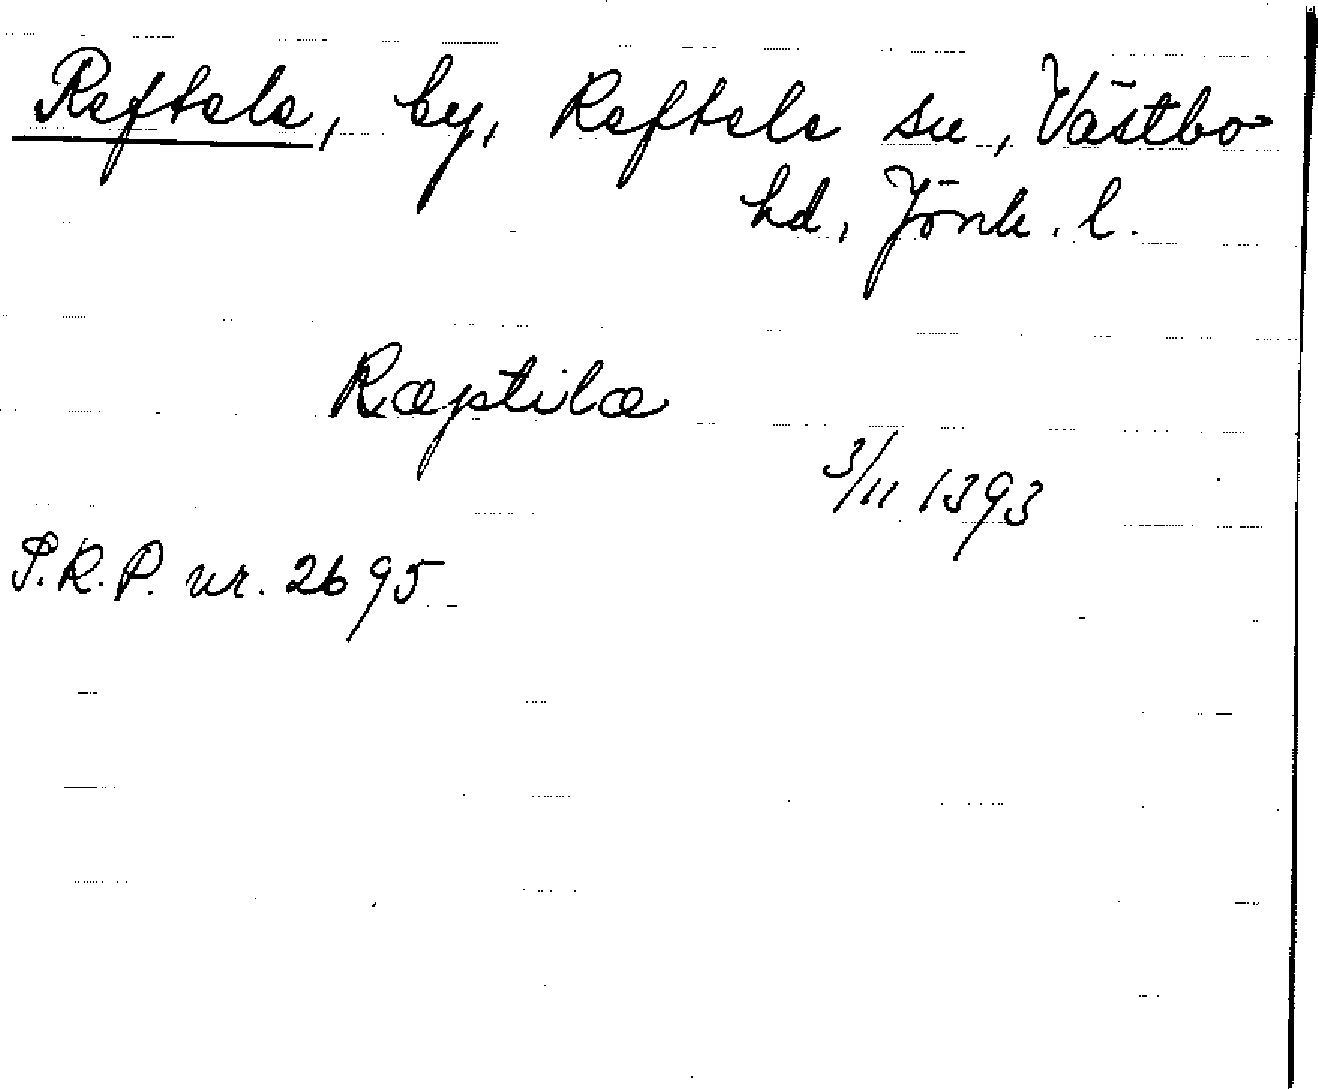 Reftele, by, Reftele sn, Västbo
hd, Jönk. l.
Ræptilæ
3/11 1393
P.R.P. nr. 2695